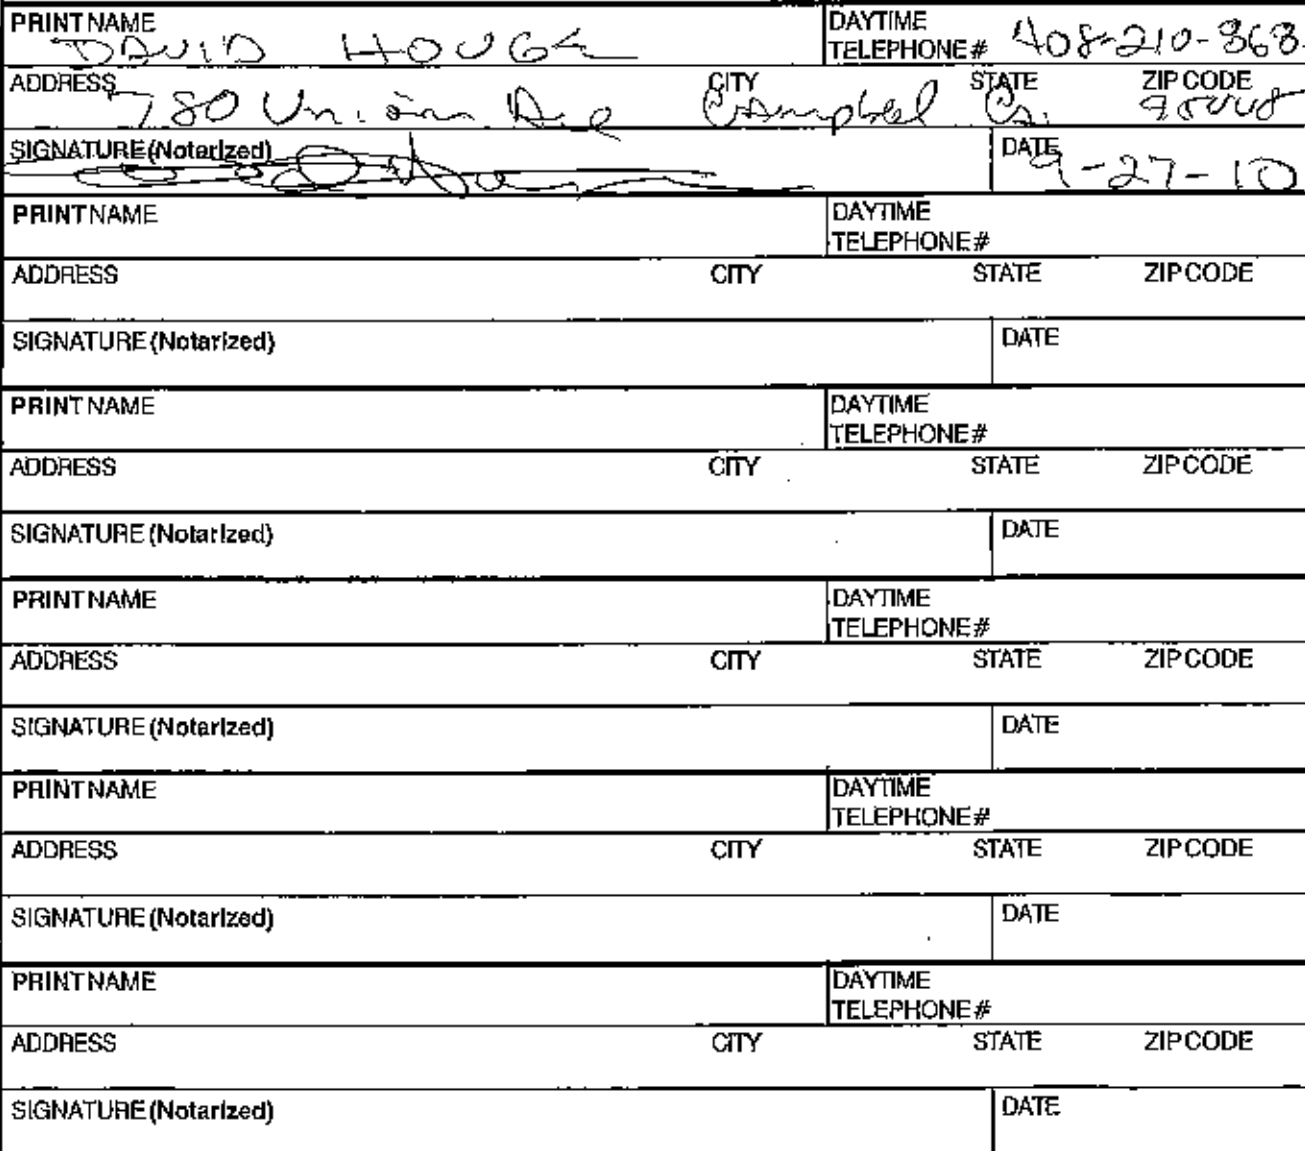 PRINT NAME DAVID HOUGH DAYTIME TELEPHONE # 408-210-363
ADDRESS 780 Union Ave CITY Campbell STATE Ca. ZIP CODE 95008
SIGNATURE (Notarized) DATE 9-27-10
PRINT NAME DAYTIME TELEPHONE #
ADDRESS CITY STATE ZIP CODE
SIGNATURE (Notarized) DATE
PRINT NAME DAYTIME TELEPHONE #
ADDRESS CITY STATE ZIP CODE
SIGNATURE (Notarized) DATE
PRINT NAME DAYTIME TELEPHONE #
ADDRESS CITY STATE ZIP CODE
SIGNATURE (Notarized) DATE
PRINT NAME DAYTIME TELEPHONE #
ADDRESS CITY STATE ZIP CODE
SIGNATURE (Notarized) DATE
PRINT NAME DAYTIME TELEPHONE #
ADDRESS CITY STATE ZIP CODE
SIGNATURE (Notarized) DATE